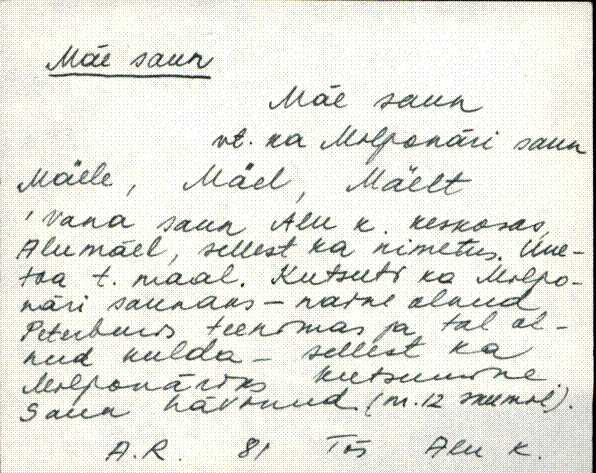 Mäe saun
Mäe saun
vt. ka Molponäri saun
Mäele, Mäel, Mäelt
, vana saun Alu k. keskosas,
Alumäel, sellest ka nimetus. Üue-
toa t. maal. Kutsuti ka Molpo-
näri saunaks – naine olnud
Peterburis teenimas ja tal ol-
nud kulda – sellest ka
Molponäriks kutsumine.
Saun hävinud. (nr. 12 skeemil).
A.R. 81 Tõs Alu k.